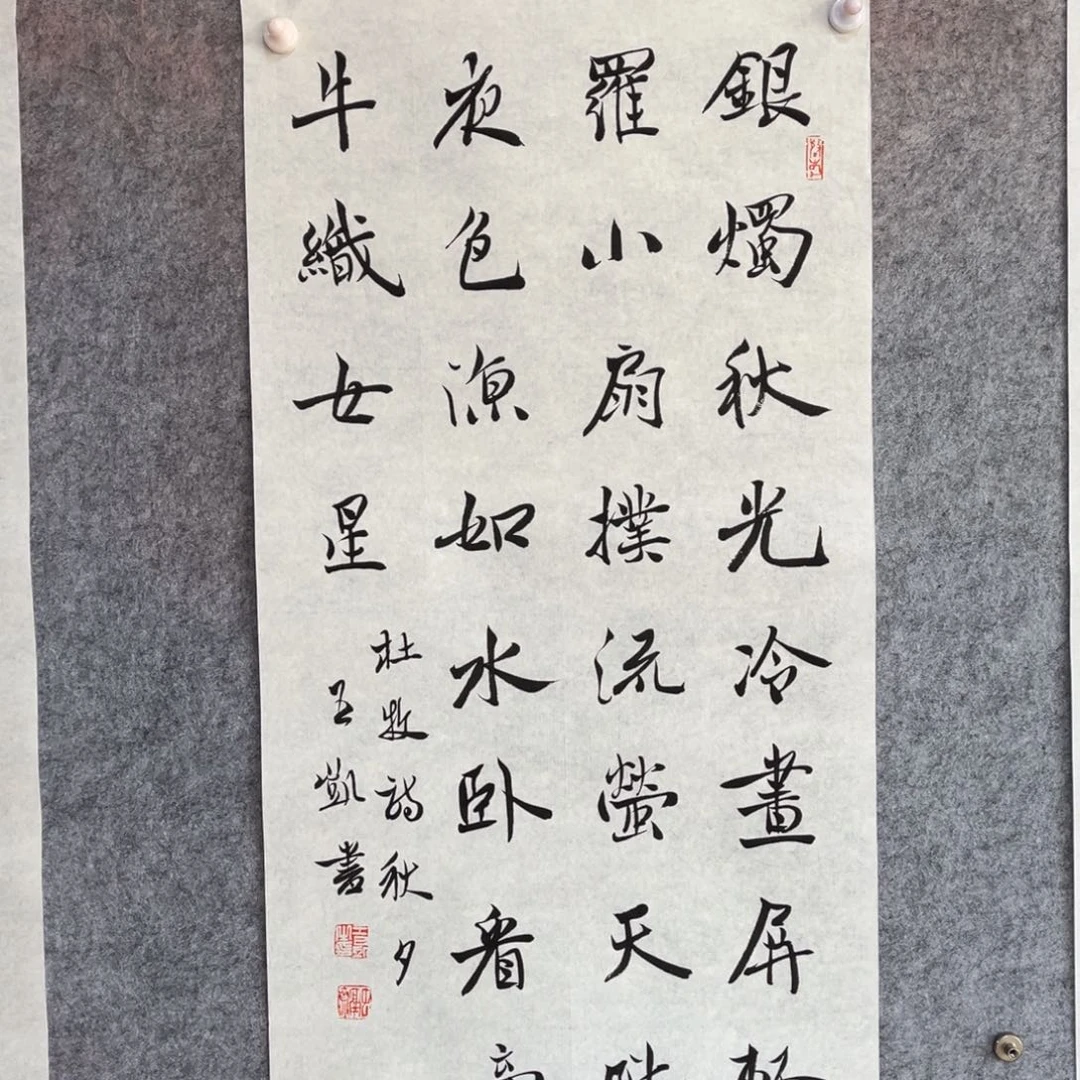 銀燭秋光冷畫屏
羅小扇撲流螢天
夜色涼如水卧看
牛織女星
杜牧詩秋夕
王凱書